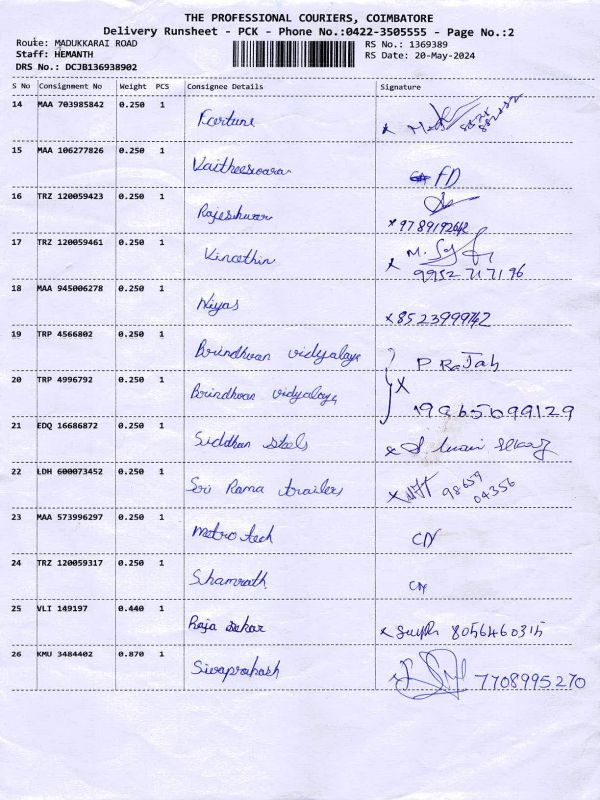 THE PROFESSIONAL COURIERS, COIMBATORE
Delivery Runsheet - PCK - Phone No.:0422-3505555 - Page No.:2
Route: MADUKKARAI ROAD
RS No.: 1369389
Staff: HEMANTH
RS Date: 20-May-2024
DRS No.: DCJB136938902
S No Consignment No Weight PCS Consignee Details Signature
14 MAA 703985842 0.250 1 Fortune
15 MAA 106277826 0.250 1 Vaitheeswara FD
16 TRZ 120059423 0.250 1 Rajeshwar
17 TRZ 120059461 0.250 1 Vincethin M.
9952717196
18 MAA 945006278 0.250 1 Niyas x8523999742
19 TRP 4566802 0.250 1 Brindhvan vidyalaya P RaJah
20 TRP 4996792 0.250 1 Brindhvan vidyalaya x 19965099129
21 EDQ 16686872 0.250 1 Siddhan steels
22 LDH 600073452 0.250 1 Sri Rama trailers x 98659
04356
23 MAA 573996297 0.250 1 Metro tech CN
24 TRZ 120059317 0.250 1 Shamrath CN
25 VLI 149197 0.440 1 Raja sekar x 8056460315
26 KMU 3484402 0.870 1 Sivaprakash 7708995270